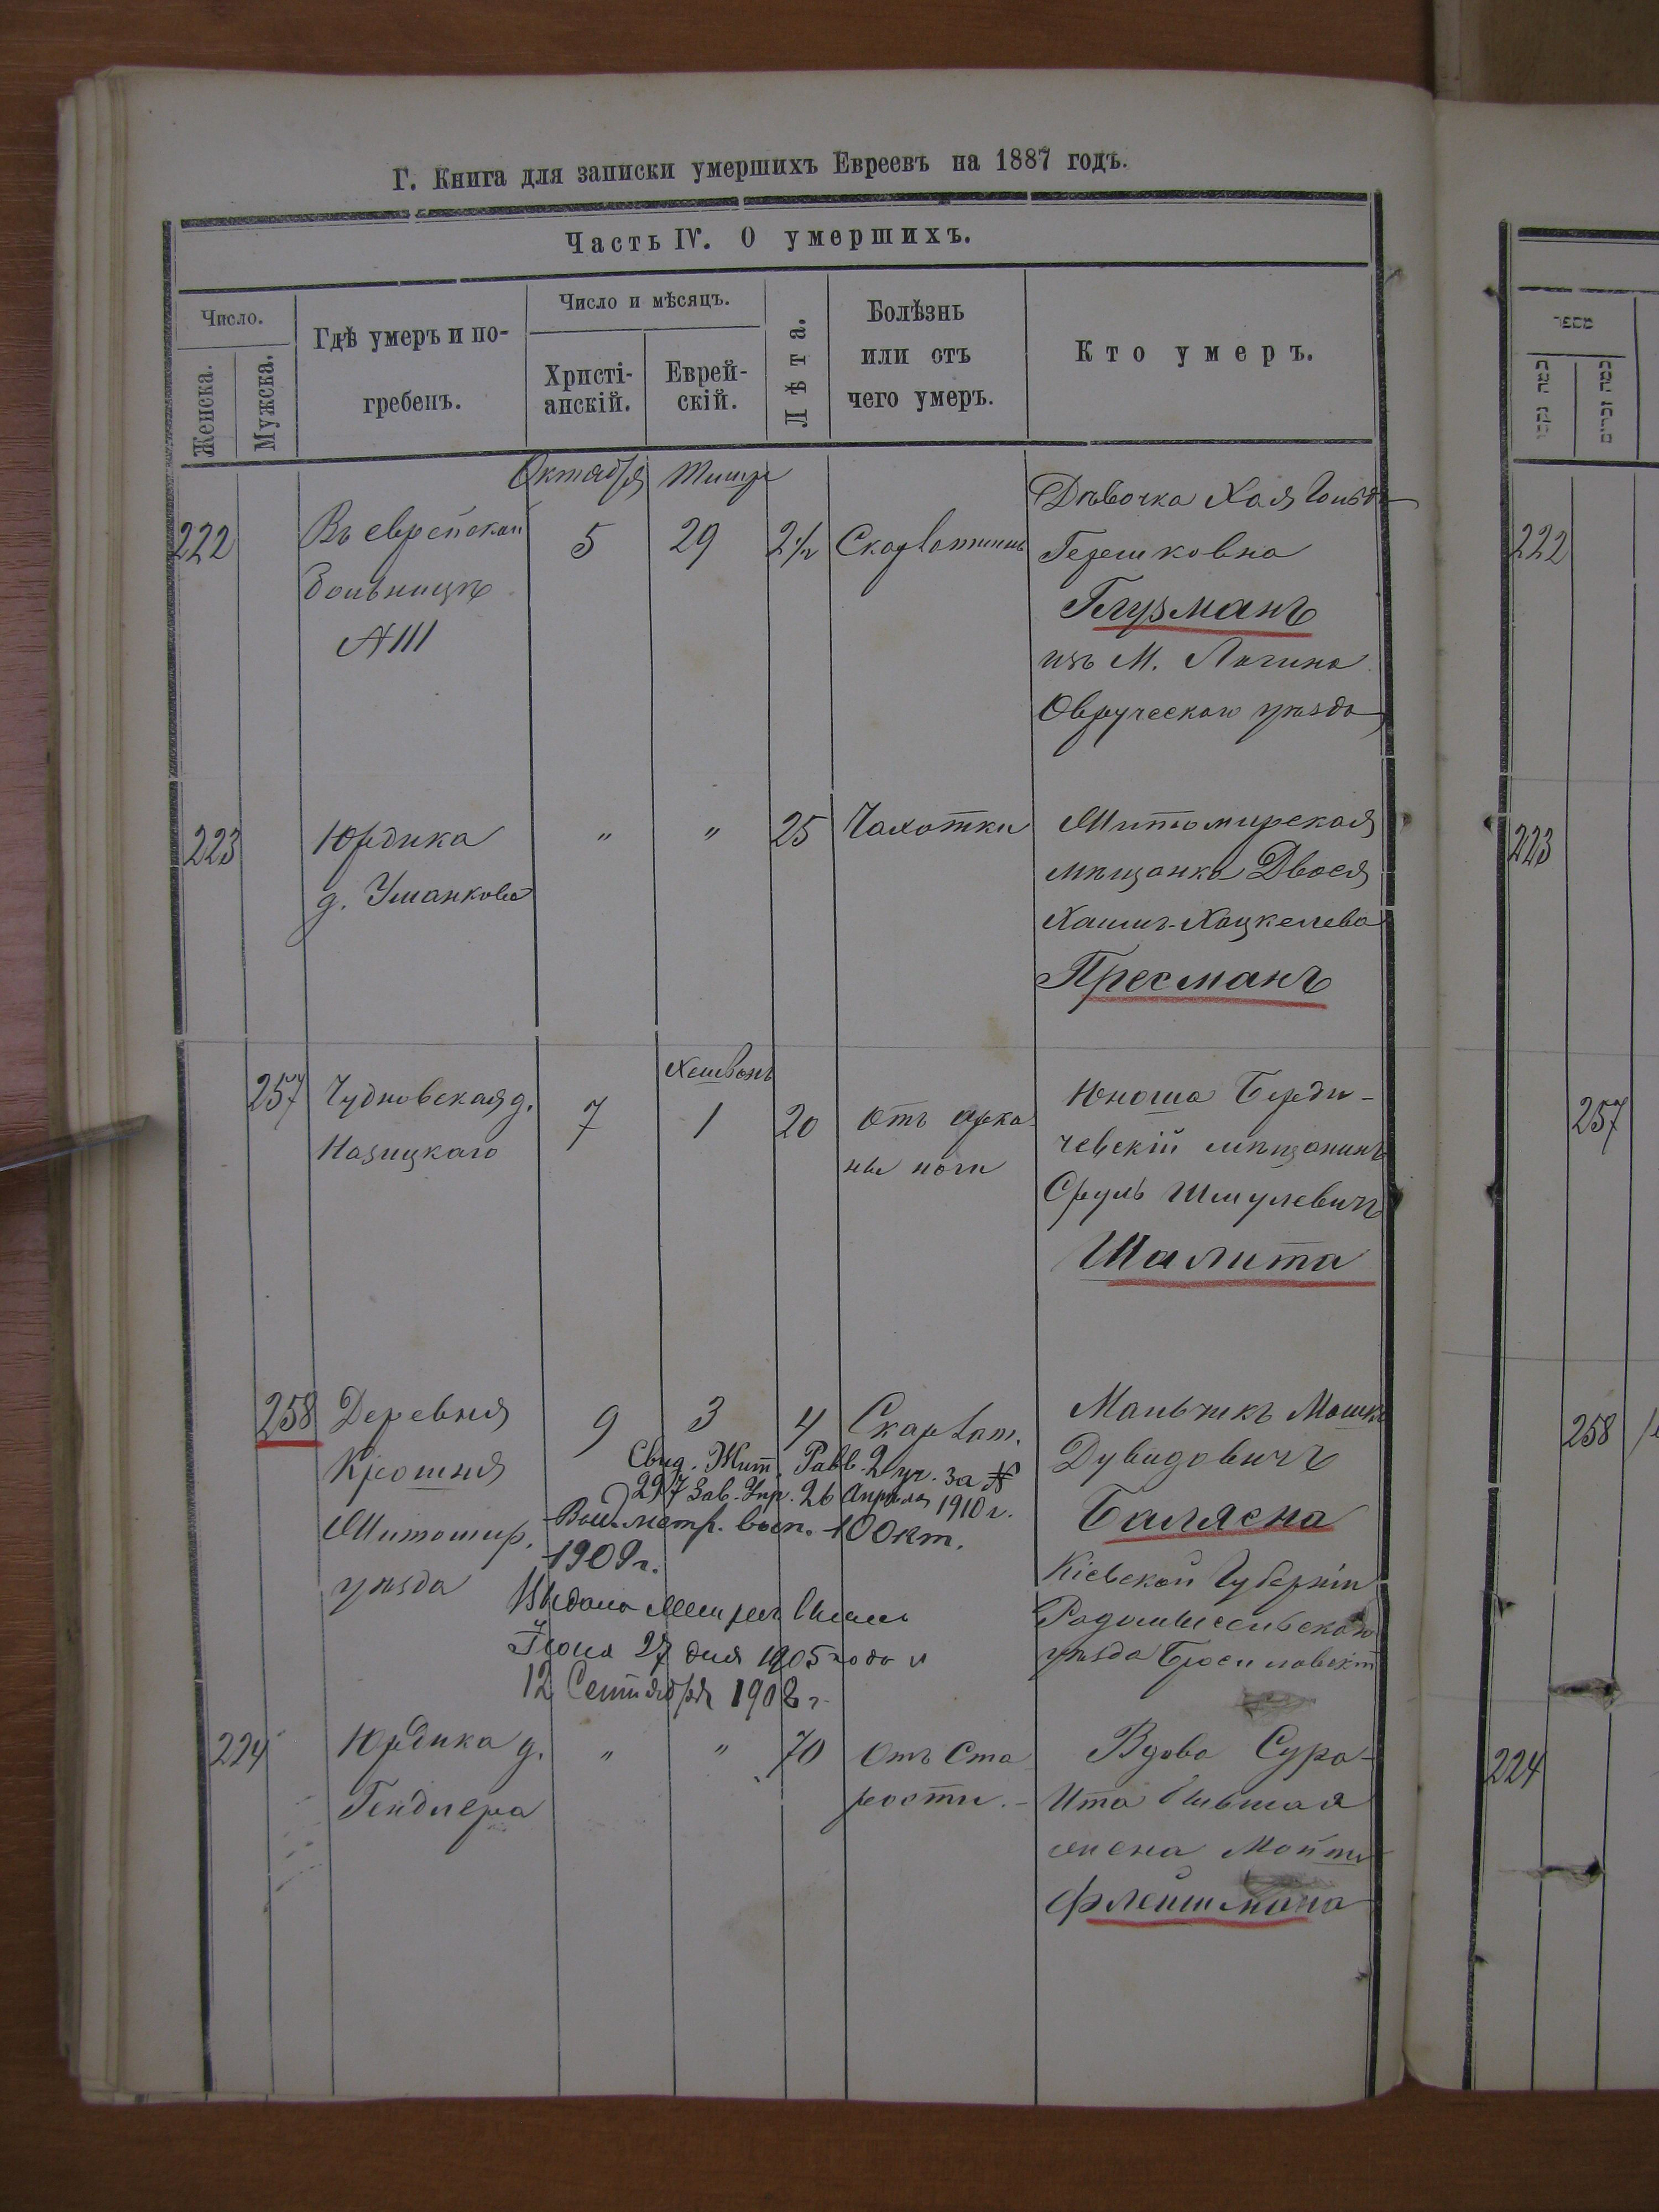 Г. Книга для записки умершихъ Евреевъ на 1887 годъ.
Часть IV. О умершихъ.
Число.
Женска.
Мужска.
Гдѣ умеръ и по-
гребенъ.
Число и мѣсяцъ.
Христі-
анскій.
Еврей-
скій.
Лѣта.
Болѣзнь
или отъ
чего умеръ.
Кто умеръ.
Октября Тишри
222 Въ еврейской 5 29 2½ Скарлатины Дѣвочка Хая
больницѣ Гершковна
Глузманъ
изъ М. Лугина
Овручскаго уѣзда
223 Юрдика " " 25 Чахотки Житомирская
д. Уманкова мѣщанка Двося
Хаимъ-Хацкелева
Пресманъ
Хешвонъ
257 Чудновская д. 7 1 20 Отъ Юноша Берди-
ны ноги чевскій мѣщанинъ
Сруль Шмулевичъ
Шалита
258 Деревня 9 3 4 Скарлат. Мальчикъ Мошко
Крошня Дувидовичъ
Житомир. Балясна
уѣзда Кіевской Губерніи
Радомысльскаго
уѣзда
Свид. Жит. Равв. 2 уч. за №
297 Зав. Упр. 26 Апрѣля 1910 г.
метр. вып. 10 окт.
1909 г.
Выдана
Іюня 27 дня 1905 года и
12 Сентября 1908 г.
224 Юрдика д. " " 70 Отъ Ста Вдова Сура-
Гендлера рости. Ита бывшая
жена
Флейшмана
מספר
222
223
257
258
224